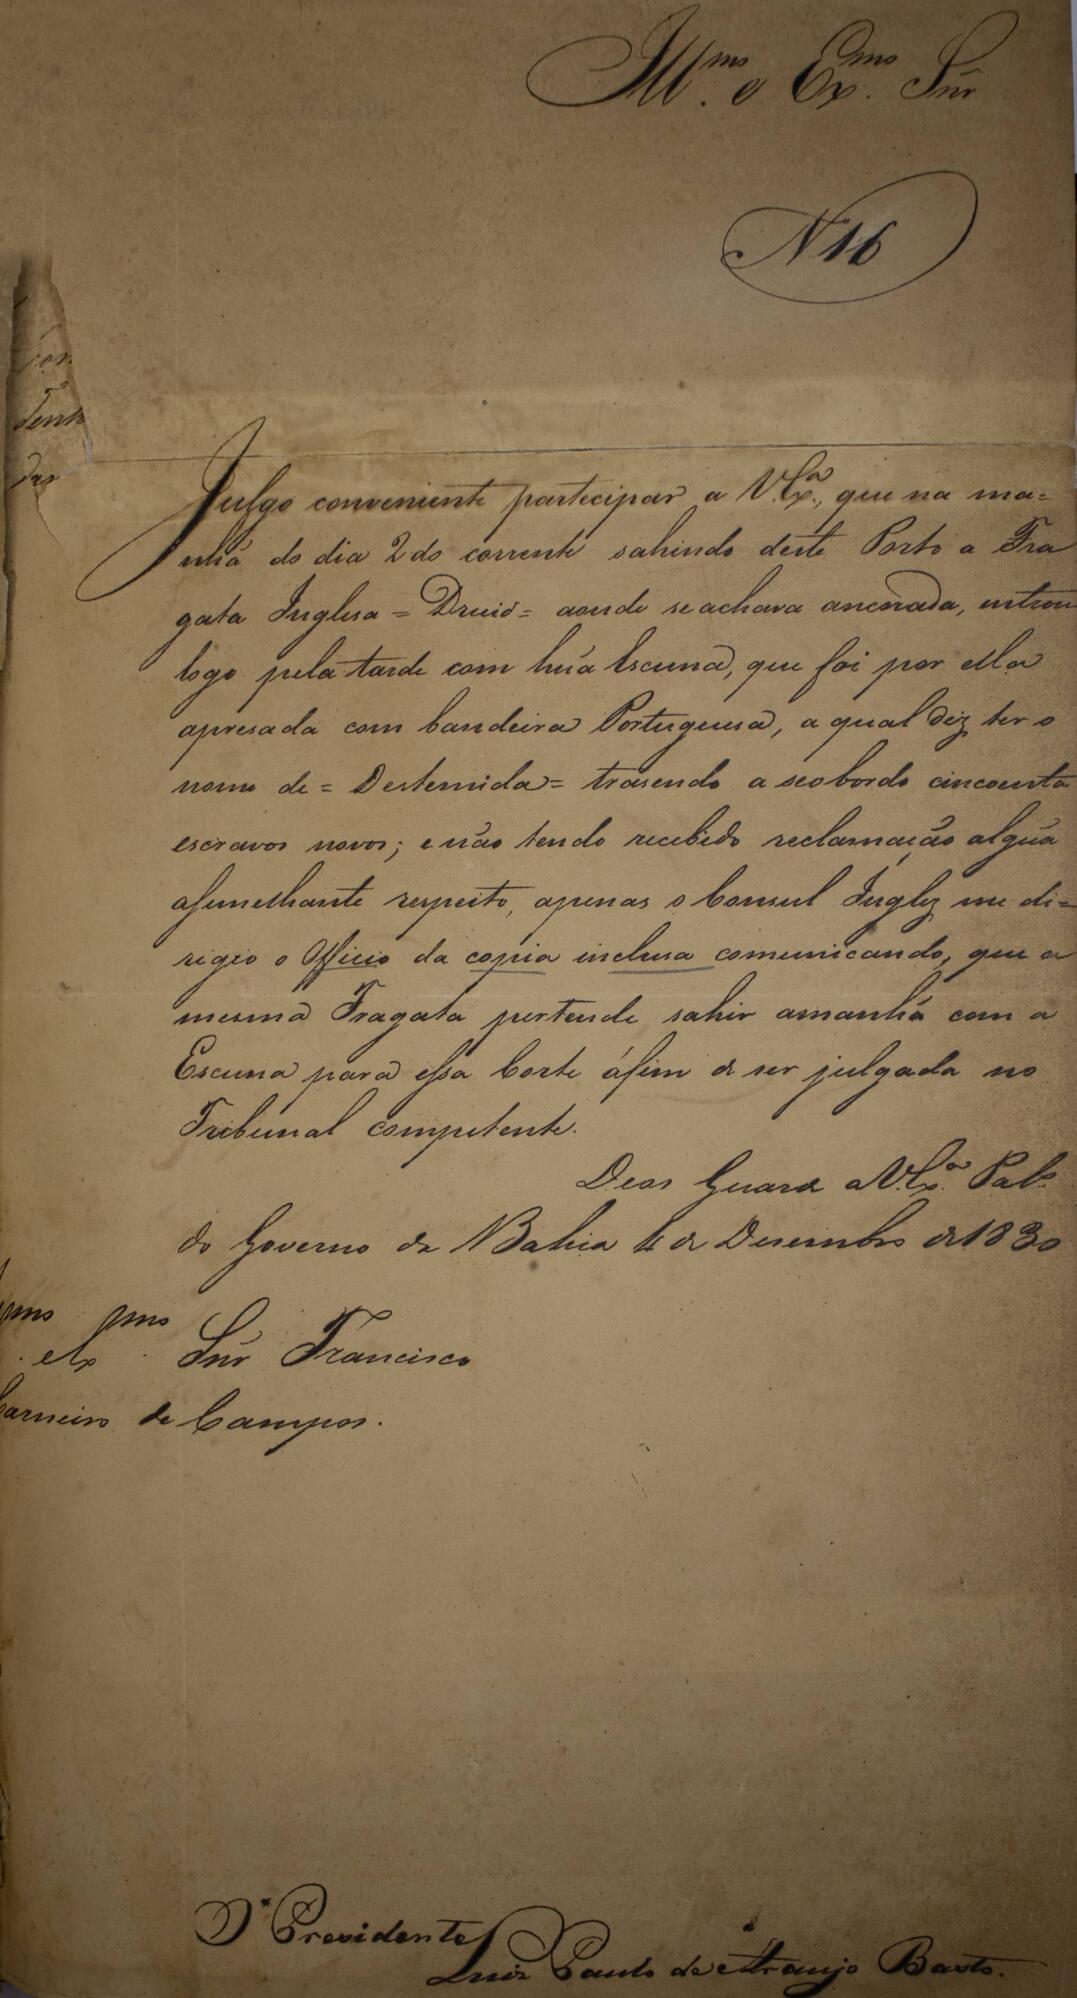 Ill.mo e Ex.mo Snr
N 16
Julgo conveniente partecipar a V.Ex.a, que na ma=
nhã do dia 2 do corrente sahindo deste Porto a Fra
gata Inglesa = Druid = aonde se achava ancorada, entrou
logo pela tarde com hũa Escuna, que foi por ella
apresada com bandeira Portuguesa, a qual diz ter o
nome de = Destemida = trasendo a seo bordo cincoenta
escravos novos; e não tendo recebido reclamação algũa
a semelhante respeito, apenas o Consul Inglez me di=
rigio o Officio da copia inclusa comunicando, que a
mesma Fragata pertende sahir amanhã com a
Escuna para essa Corte áfim de ser julgada no
Tribunal competente.
Deos Guarde a V.Ex.a Pal.o
do Governo da Bahia 4 de Desembro de 1830
mo e Ex.mo Snr Francisco
Carneiro de Campos.
D. Presidente
Luiz Paulo de Araujo Basto.